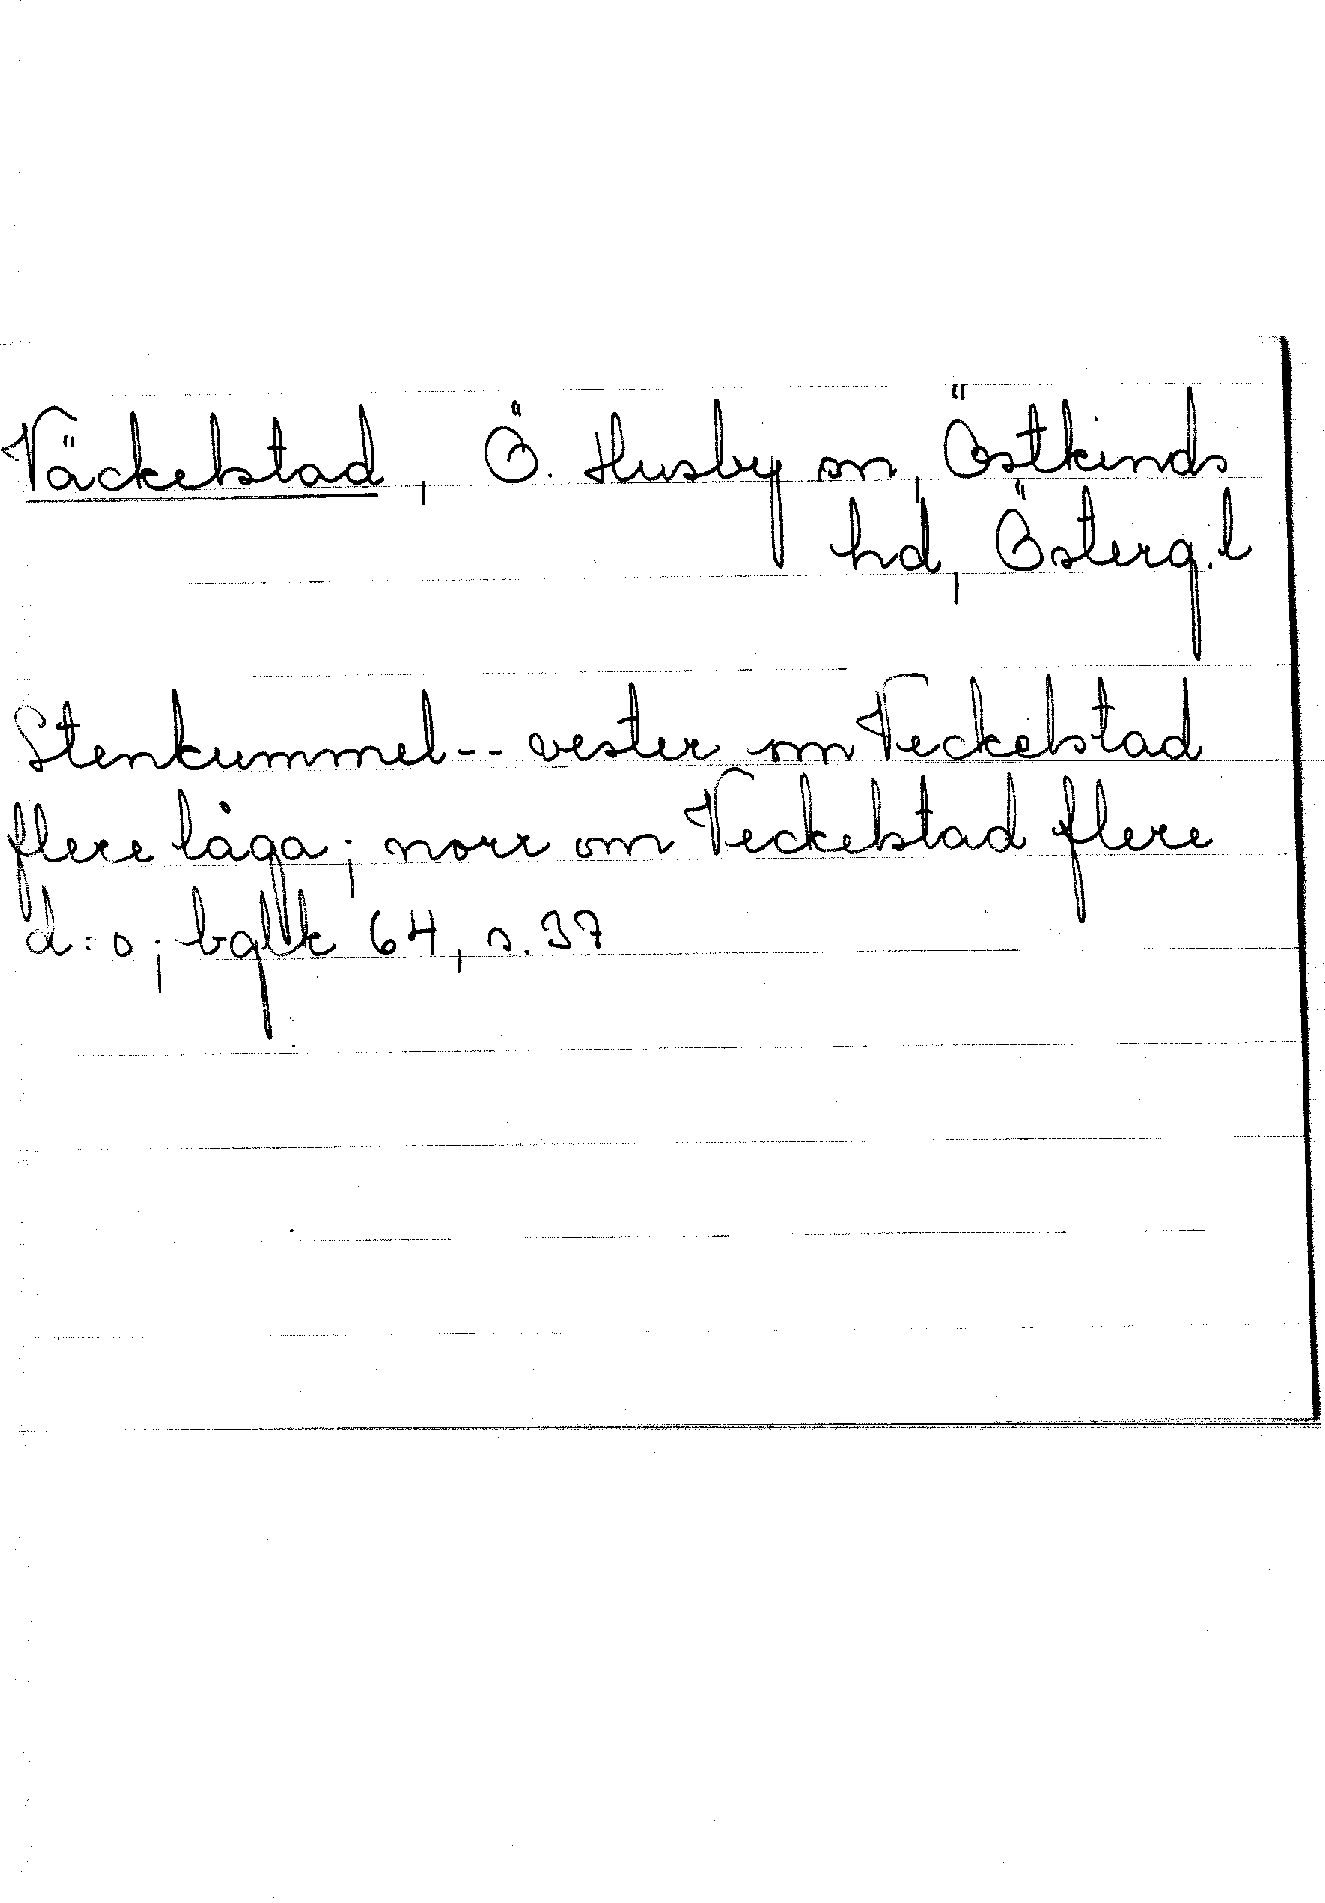 Väckelstad, Ö. Husby sn, Östkinds
hd, Österg.l
Stenkummel-- vester om Veckelstad
flere låga; norr om Veckelstad flere
d:o; bglk 64, s. 37